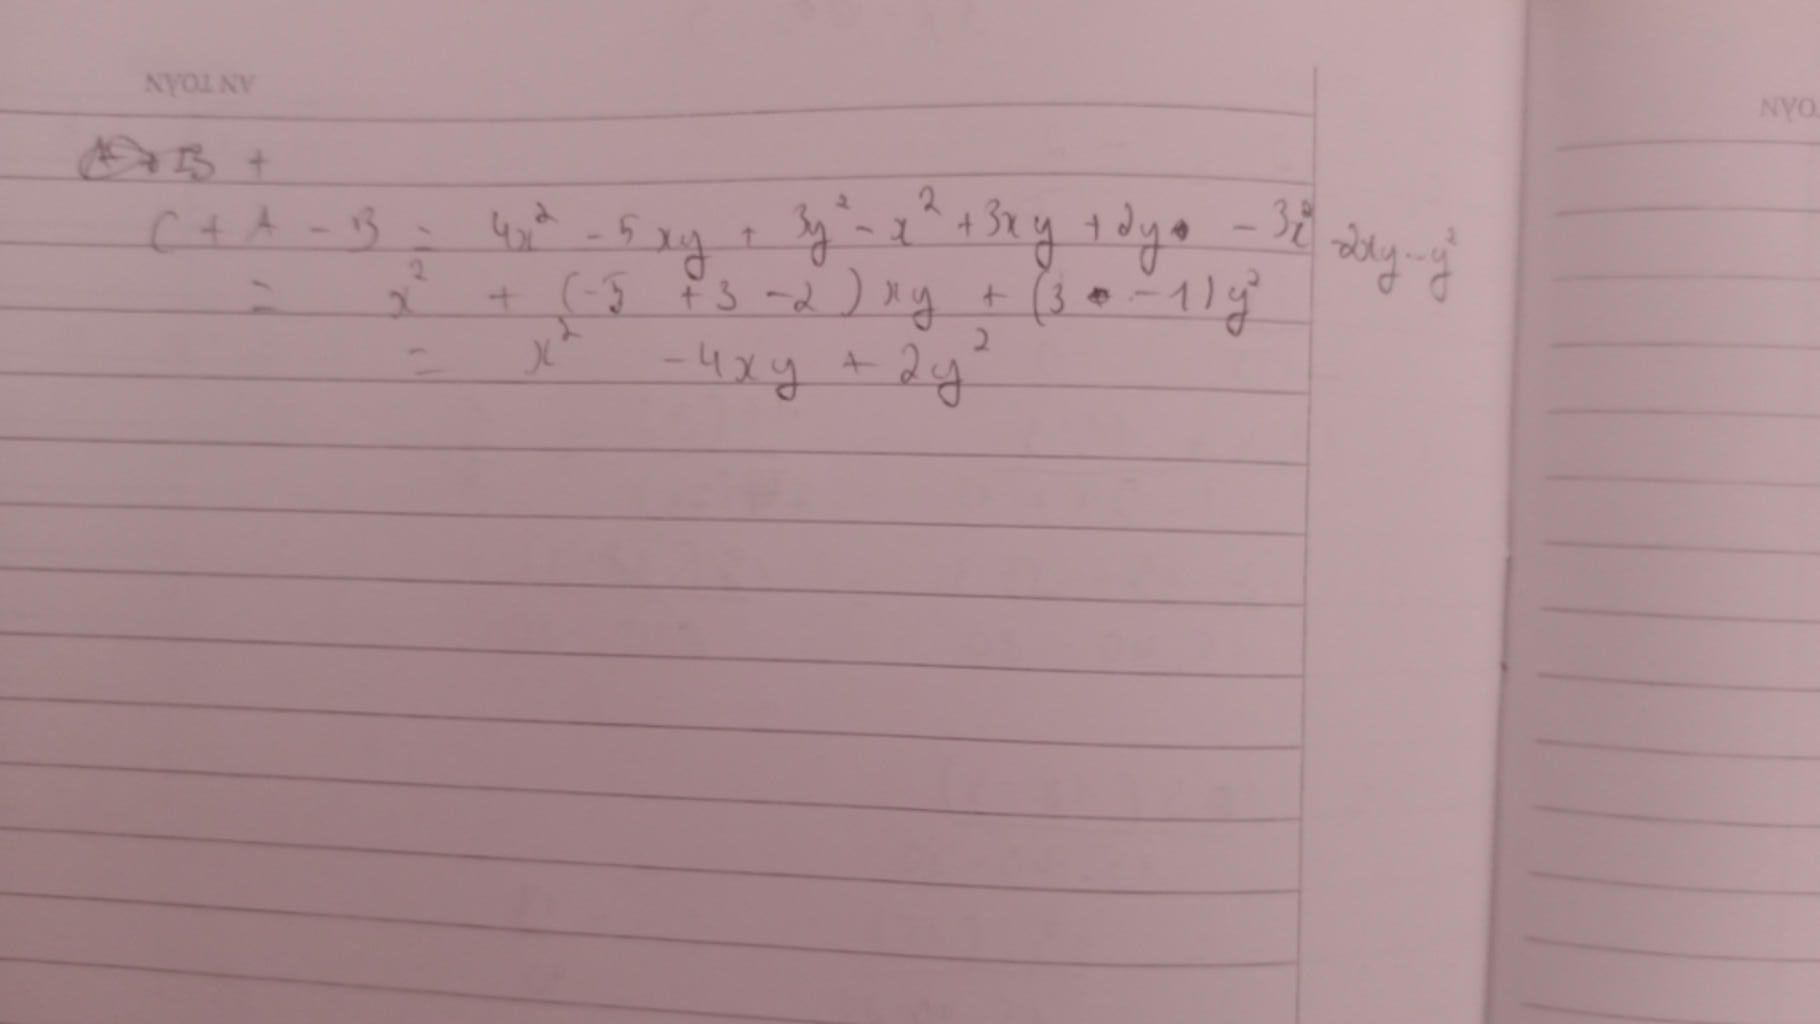 AN TOÀN
TOÀN
B +
C + A - B = 4x² - 5xy + 3y² - x² + 3xy + 2y - 3x² - 2xy - y²
= x² + (-5 + 3 - 2) xy + (3 - 1) y²
= x² - 4xy + 2y²